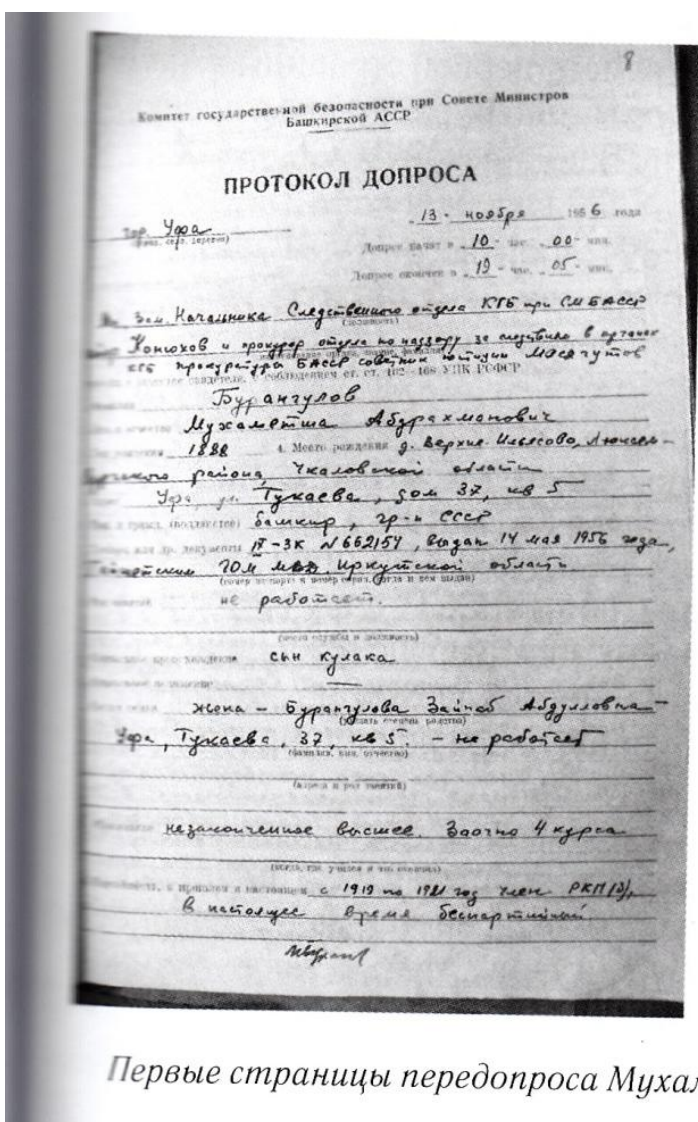 8
Комитет государственной безопасности при Совете Министров
Башкирской АССР
ПРОТОКОЛ ДОПРОСА
гор. Уфа
"13" ноября 1956 года
Допрос начат в "10" час. "00" мин.
Допрос окончен в "19" час. "05" мин.
Зам. Начальника Следственного отдела КГБ при СМ БАССР
(должность)
Конюхов и прокурор отдела по надзору за следствием в органах
КГБ прокуратуры БАССР советник юстиции Мясягутов
свидетеля, с соблюдением ст. ст. 162—168 УПК РСФСР
Бурангулов
Мухаметша Абдрахманович
1888 4. Место рождения д. Верхне-Ильясово,
района, Чкаловской области
Уфа, ул. Тукаева, дом 37, кв 5
(подданство) башкир, гр-н СССР
или др. документы IV-ЗК N 662154, выдан 14 мая 1956 года,
Тайшетским ГОМ МВД Иркутской области
(номер паспорта, когда и кем выдан)
не работает.
(место службы и должность)
сын кулака
жена – Бурангулова Зайнаб Абдулловна –
(указать степень родства)
Уфа, Тукаева, 37, кв 5. – не работает
(фамилия, имя, отчество)
(адреса и род занятий)
незаконченное высшее. Заочно 4 курса
(когда, где учился и что окончил)
в прошлом и настоящем с 1919 по 1921 год член РКП(б),
В настоящее время беспартийный
Первые страницы передопроса Муха